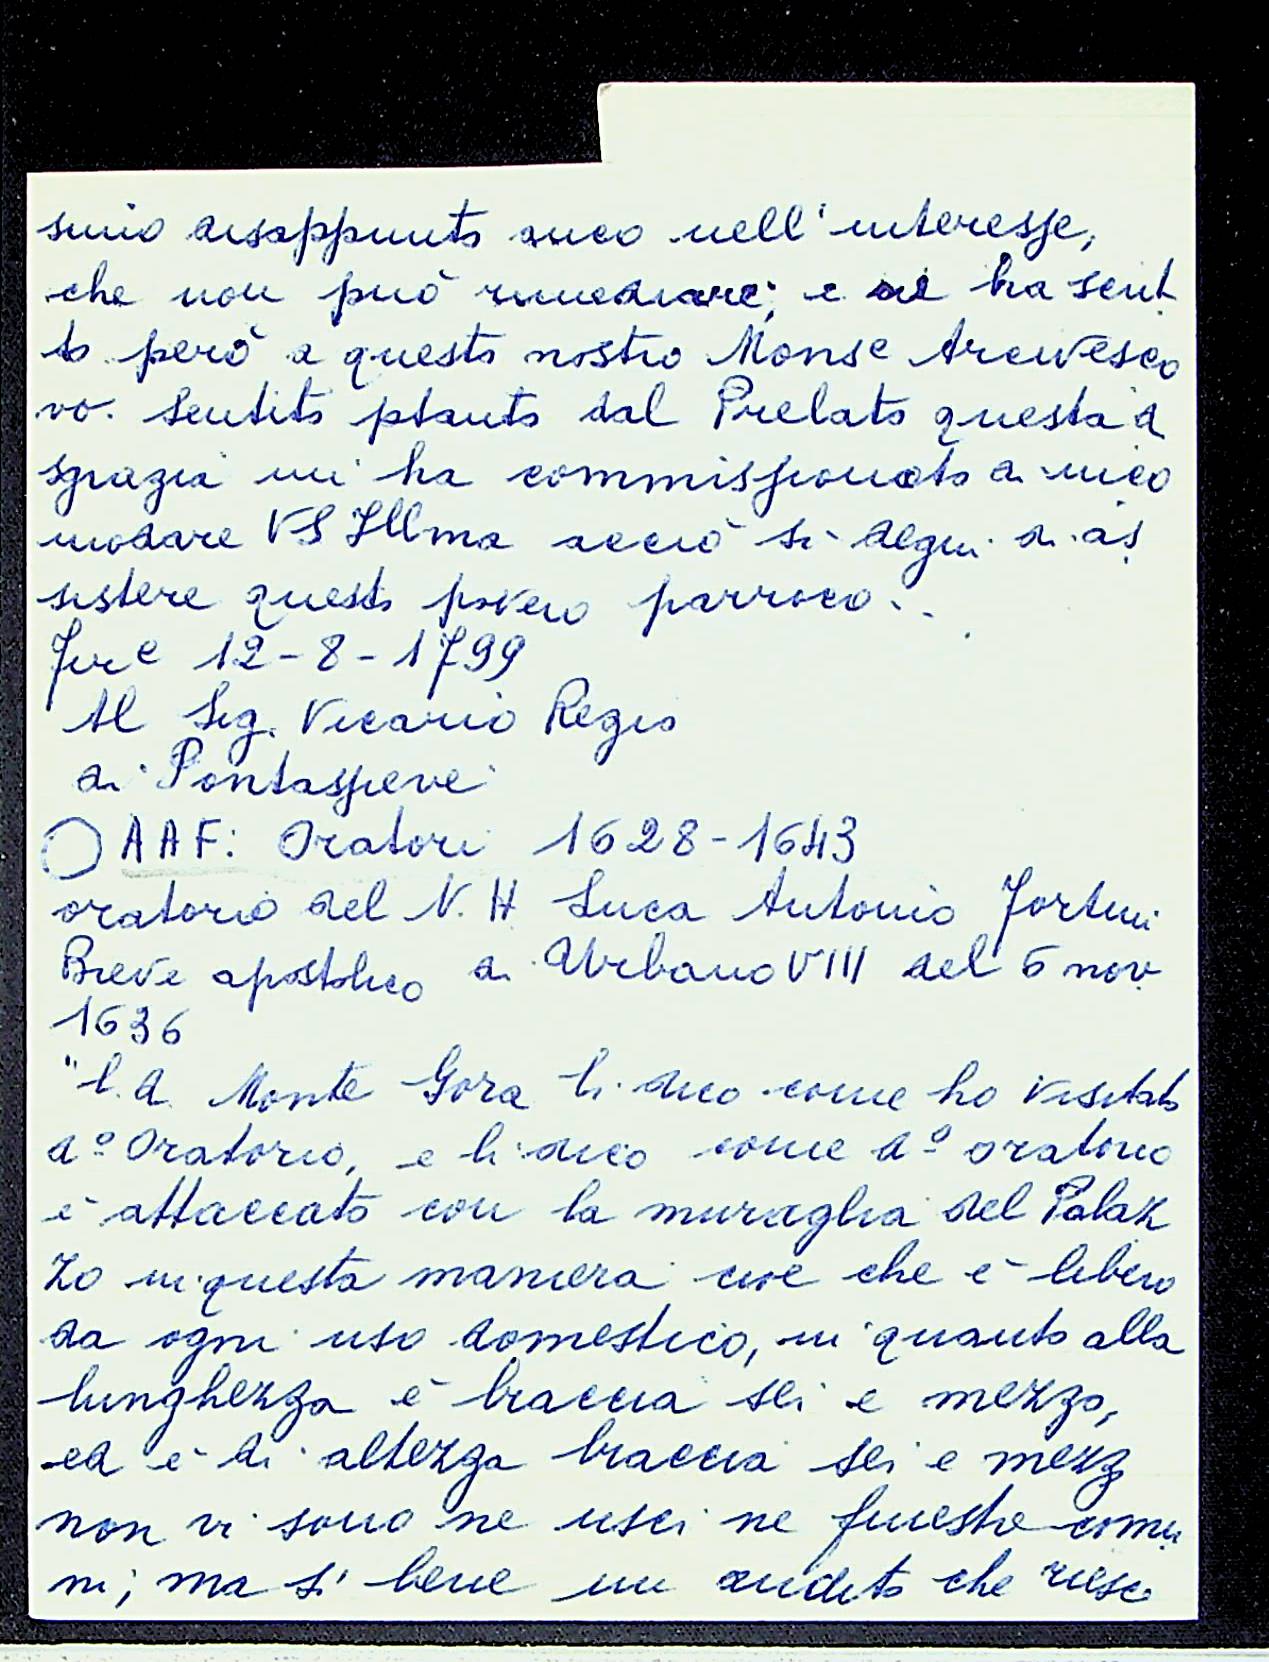 simo disappunto anco nell'interesse,
che non può rimediare; e si ha senti
to però a questo nostro Monse Arcivesco
vo. Sentito ptanto dal Prelato questa di
sgrazia mi ha commissionato di inco
modare VS Illma acciò si degni di as
sistere questo povero parroco..
Fire 12-8-1799
Al Sig. Vicario Regio
di Pontassieve
AAF: Oratori 1628-1643
oratorio del N.H Luca Antonio Fortini
Breve apostolico di Urbano VIII del 6 nov
1636
"l.d. Monte Gora li dico come ho visitato
dº Oratorio, e li dico come dº oratorio
è attaccato con la muraglia del Palaz
zo in questa maniera cioè che è libero
da ogni uso domestico, in quanto alla
lunghezza è braccia sei e mezzo,
ed è di altezza braccia sei e mezz
non vi sono ne usci ne finestre comu
ni; ma sì bene un andito che riesc